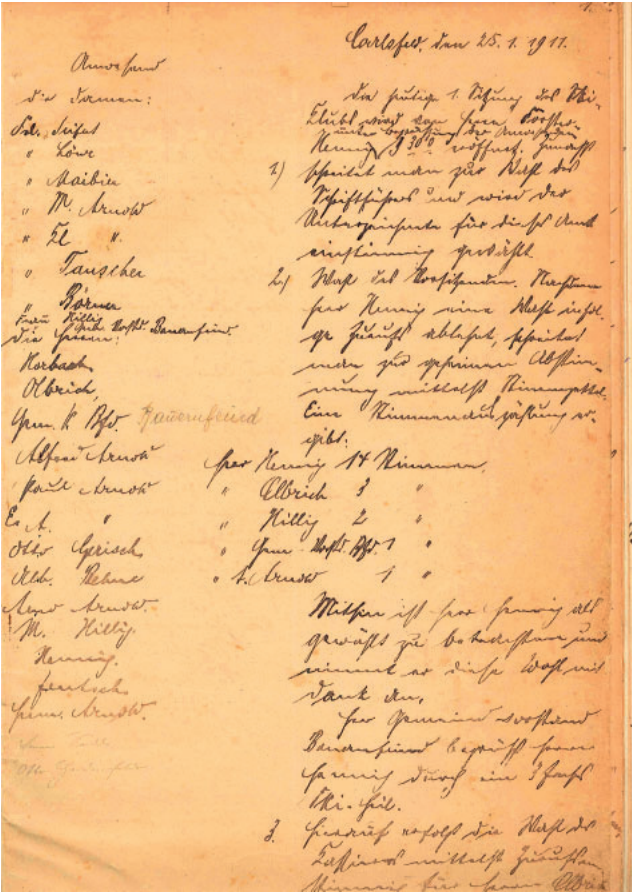 1.
Carlsfeld, den 25.1.1911.
Anwesend
die Damen:
Frl. Seifert
" Löwe
" M. Arnold
" El. "
" Tauscher
" Börner
Frau Hillig
Gem. Vorstd. Bauernfeind.
die Herren:
Horbach
Olbrich,
Gem. V. Bfd. Bauernfeind
Alfred Arnold
Paul Arnold
E. A. "
Otto Gerisch
Alb. Rehm
Arno Arnold.
M. Hillig.
Hennig.
Jentsch
Herm. Arnold.
Die heutige 1. Sitzung des Ski-
Klubs wird von Herrn Förster
unter Begrüssung der Anwesenden
Hennig 9 30 eröffnet. Zunächst
1.) schreitet man zur Wahl des
Schriftführers und wird der
Unterzeichnete für dieses Amt
einstimmig gewählt.
2.) Wahl des Vorsitzenden. Nachdem
Herr Hennig eine Wahl infol-
ge Zurufs ablehnt, schreitet
man zur geheimen Abstim-
mung mittelst Stimmzettel.
Eine Stimmenauszählung er-
gibt:
Herr Hennig 14 Stimmen.
" Olbrich 3 "
" Hillig 2 "
" Gem. Vorstd. Bfd. 1 "
" A. Arnold 1 "
Mithin ist Herr Hennig als
gewählt zu betrachten und
nimmt er diese Wahl mit
Dank an.
Herr Gemeindevorstand
Bauernfeind begrüsst Herrn
Hennig durch ein 3faches
Ski-Heil.
3. Hierauf erfolgt die Wahl des
Kassierers mittelst Zurufs
für Herrn Olbrich